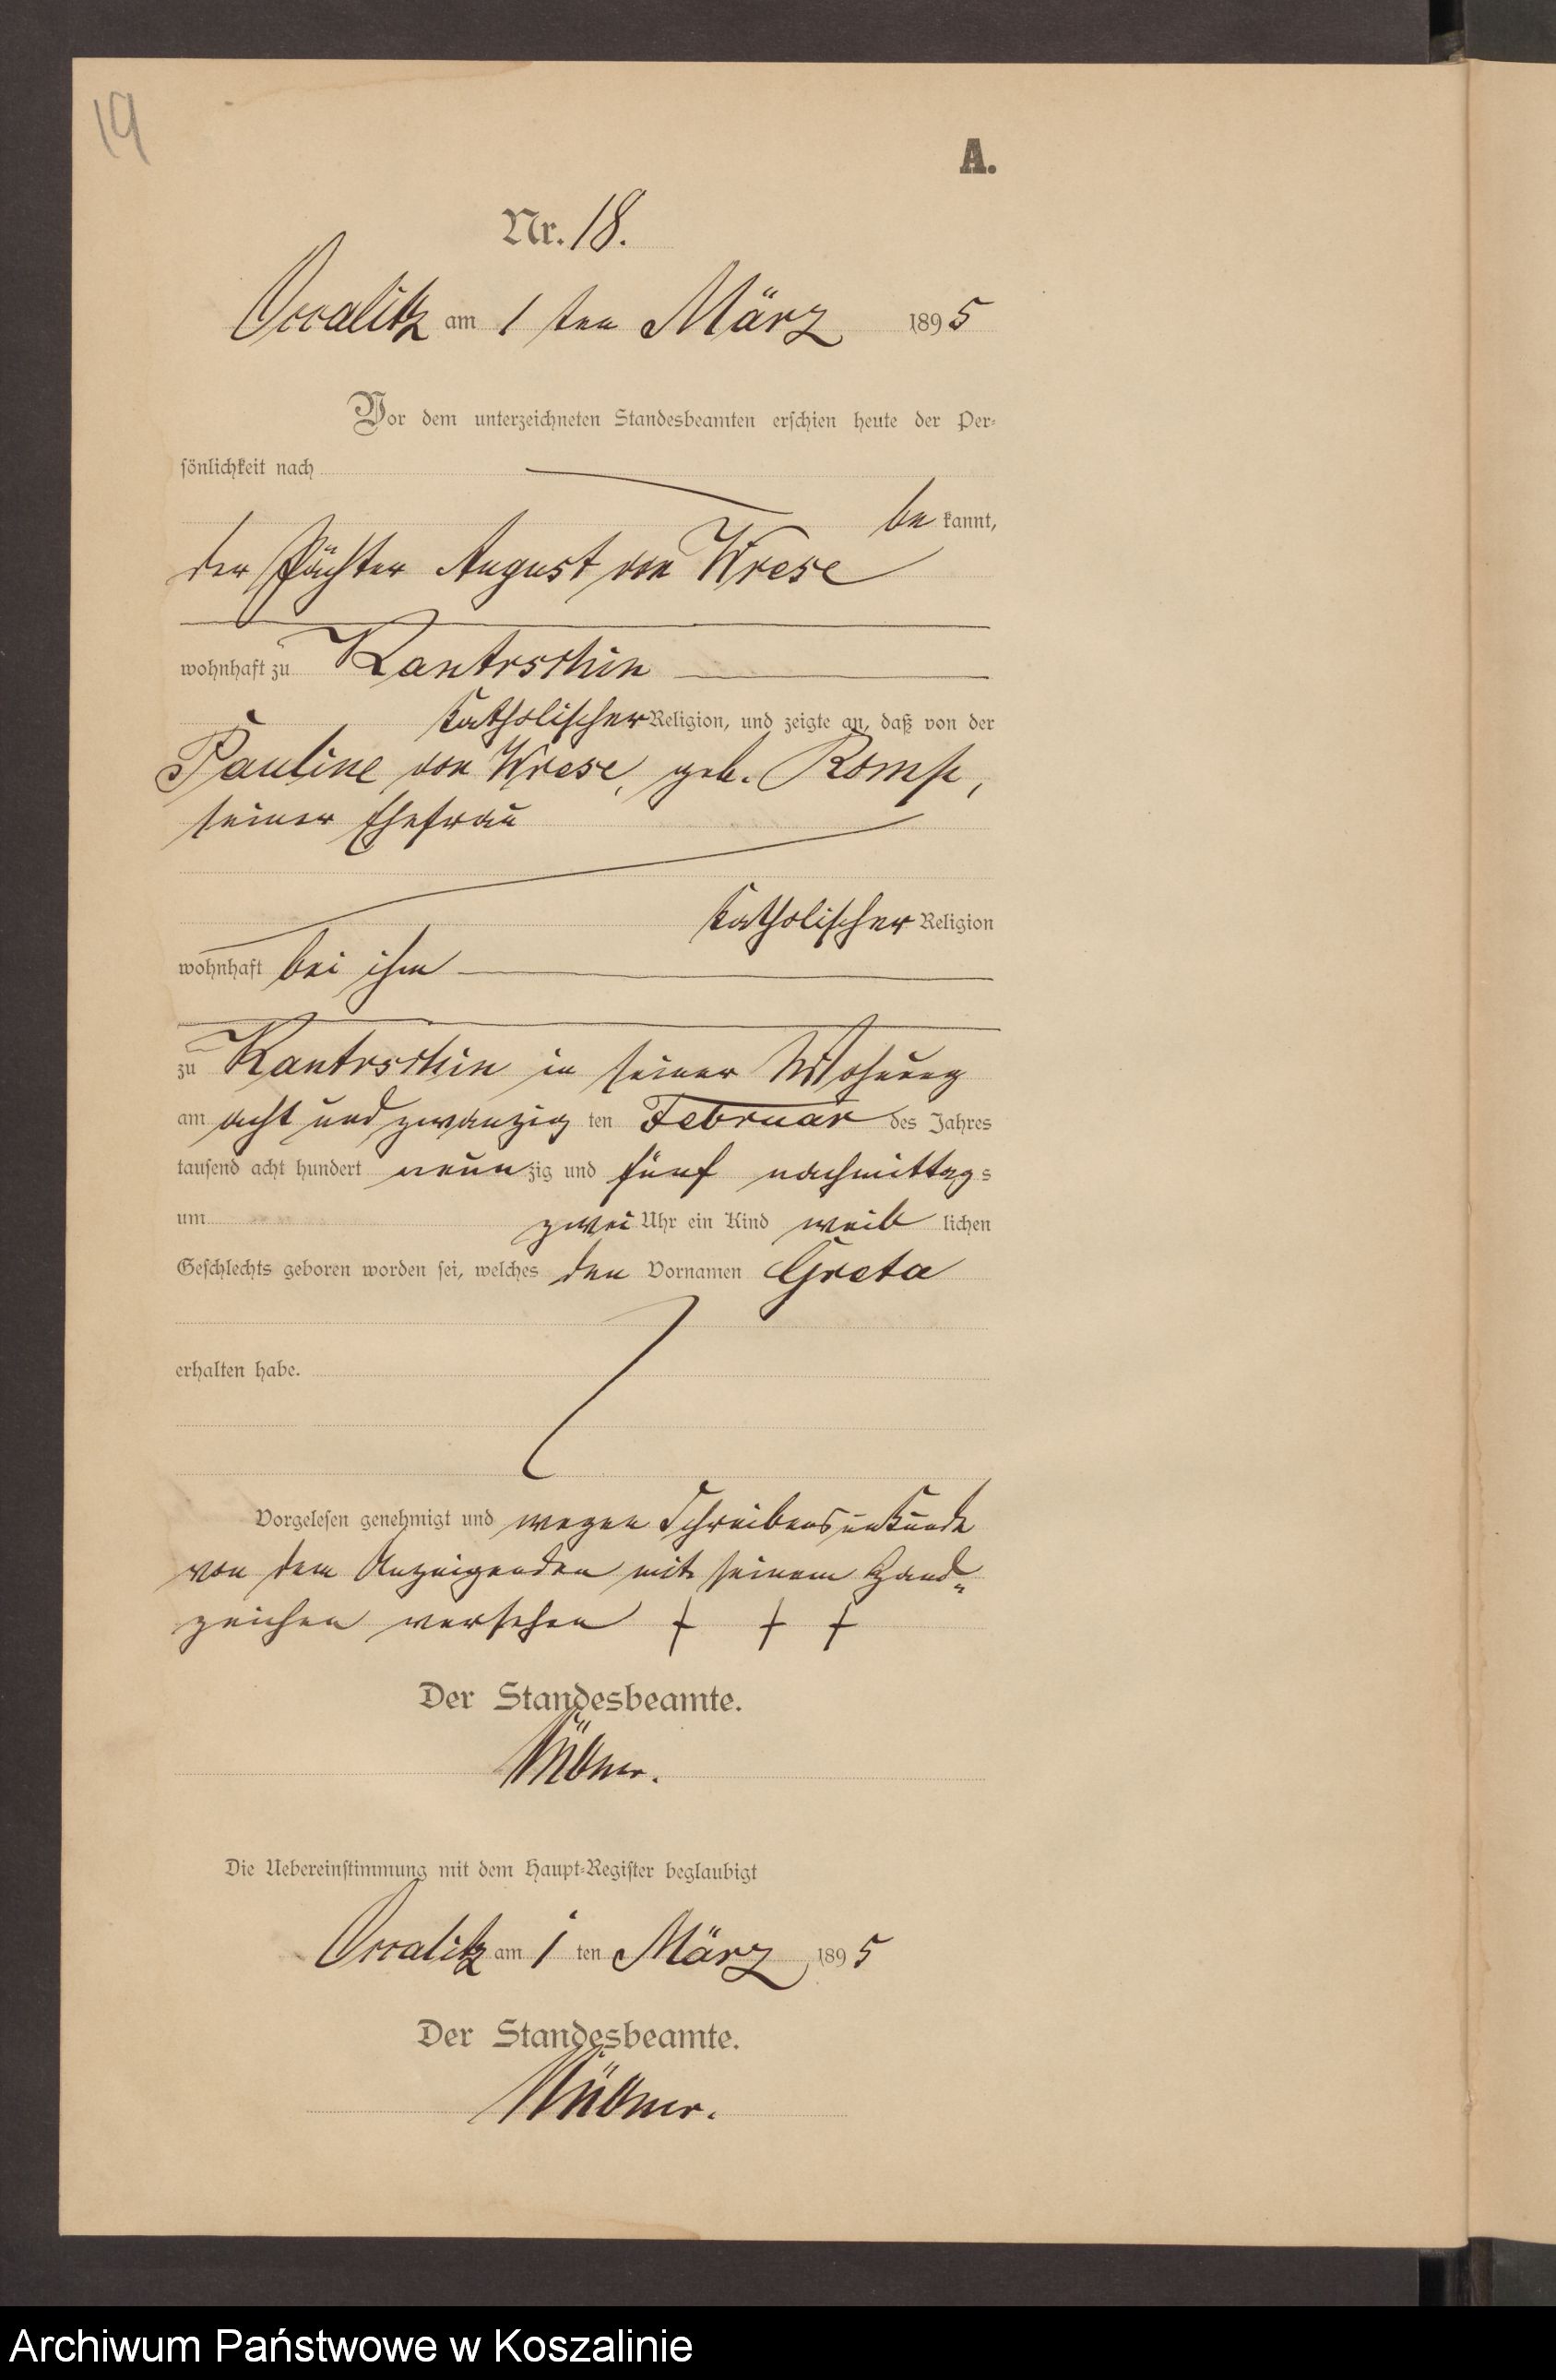 19
A.
Nr. 18.
Occalitz am 1 ten März 1895
Vor dem unterzeichneten Standesbeamten erschien heute der Per-
sönlichkeit nach
be kannt,
der Pächter August von Wrese
wohnhaft zu Kantrschin
katholischer Religion, und zeigte an, daß von der
Pauline von Wrese, geb. Romp,
seiner Ehefrau
katholischer Religion
wohnhaft bei ihm
zu Kantrschin in seiner Wohnung
am acht und zwanzig ten Februar des Jahres
tausend acht hundert neun zig und fünf nachmittag s
um zwei Uhr ein Kind weib lichen
Geschlechts geboren worden sei, welches den Vornamen Greta
erhalten habe.
Vorgelesen genehmigt und wegen Schreibensunkunde
von dem Anzeigenden mit seinem Hand-
zeichen versehen + + +
Der Standesbeamte.
Die Uebereinstimmung mit dem Haupt-Register beglaubigt
Occalitz am 1 ten März 1895
Der Standesbeamte.
Archiwum Państwowe w Koszalinie